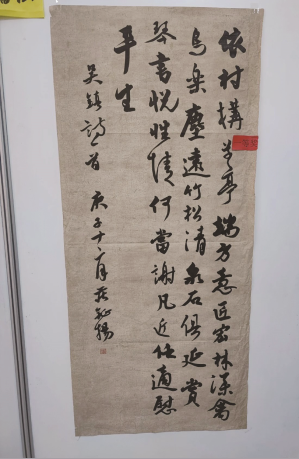 依村構草亭端方意匠宏林深禽
鳥樂塵遠竹松清泉石俱延賞
琴書悦性情何當謝凡近任適慰
平生
吴鎮詩一首 庚子十一月